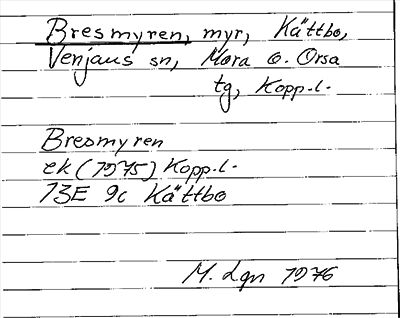 Bresmyren, myr, Kättbo,
Venjans sn, Mora o. Orsa
tg, Kopp.l.
Bresmyren
ek (1975) Kopp.l.
13E 9c Kättbo
M. Lgn 1976